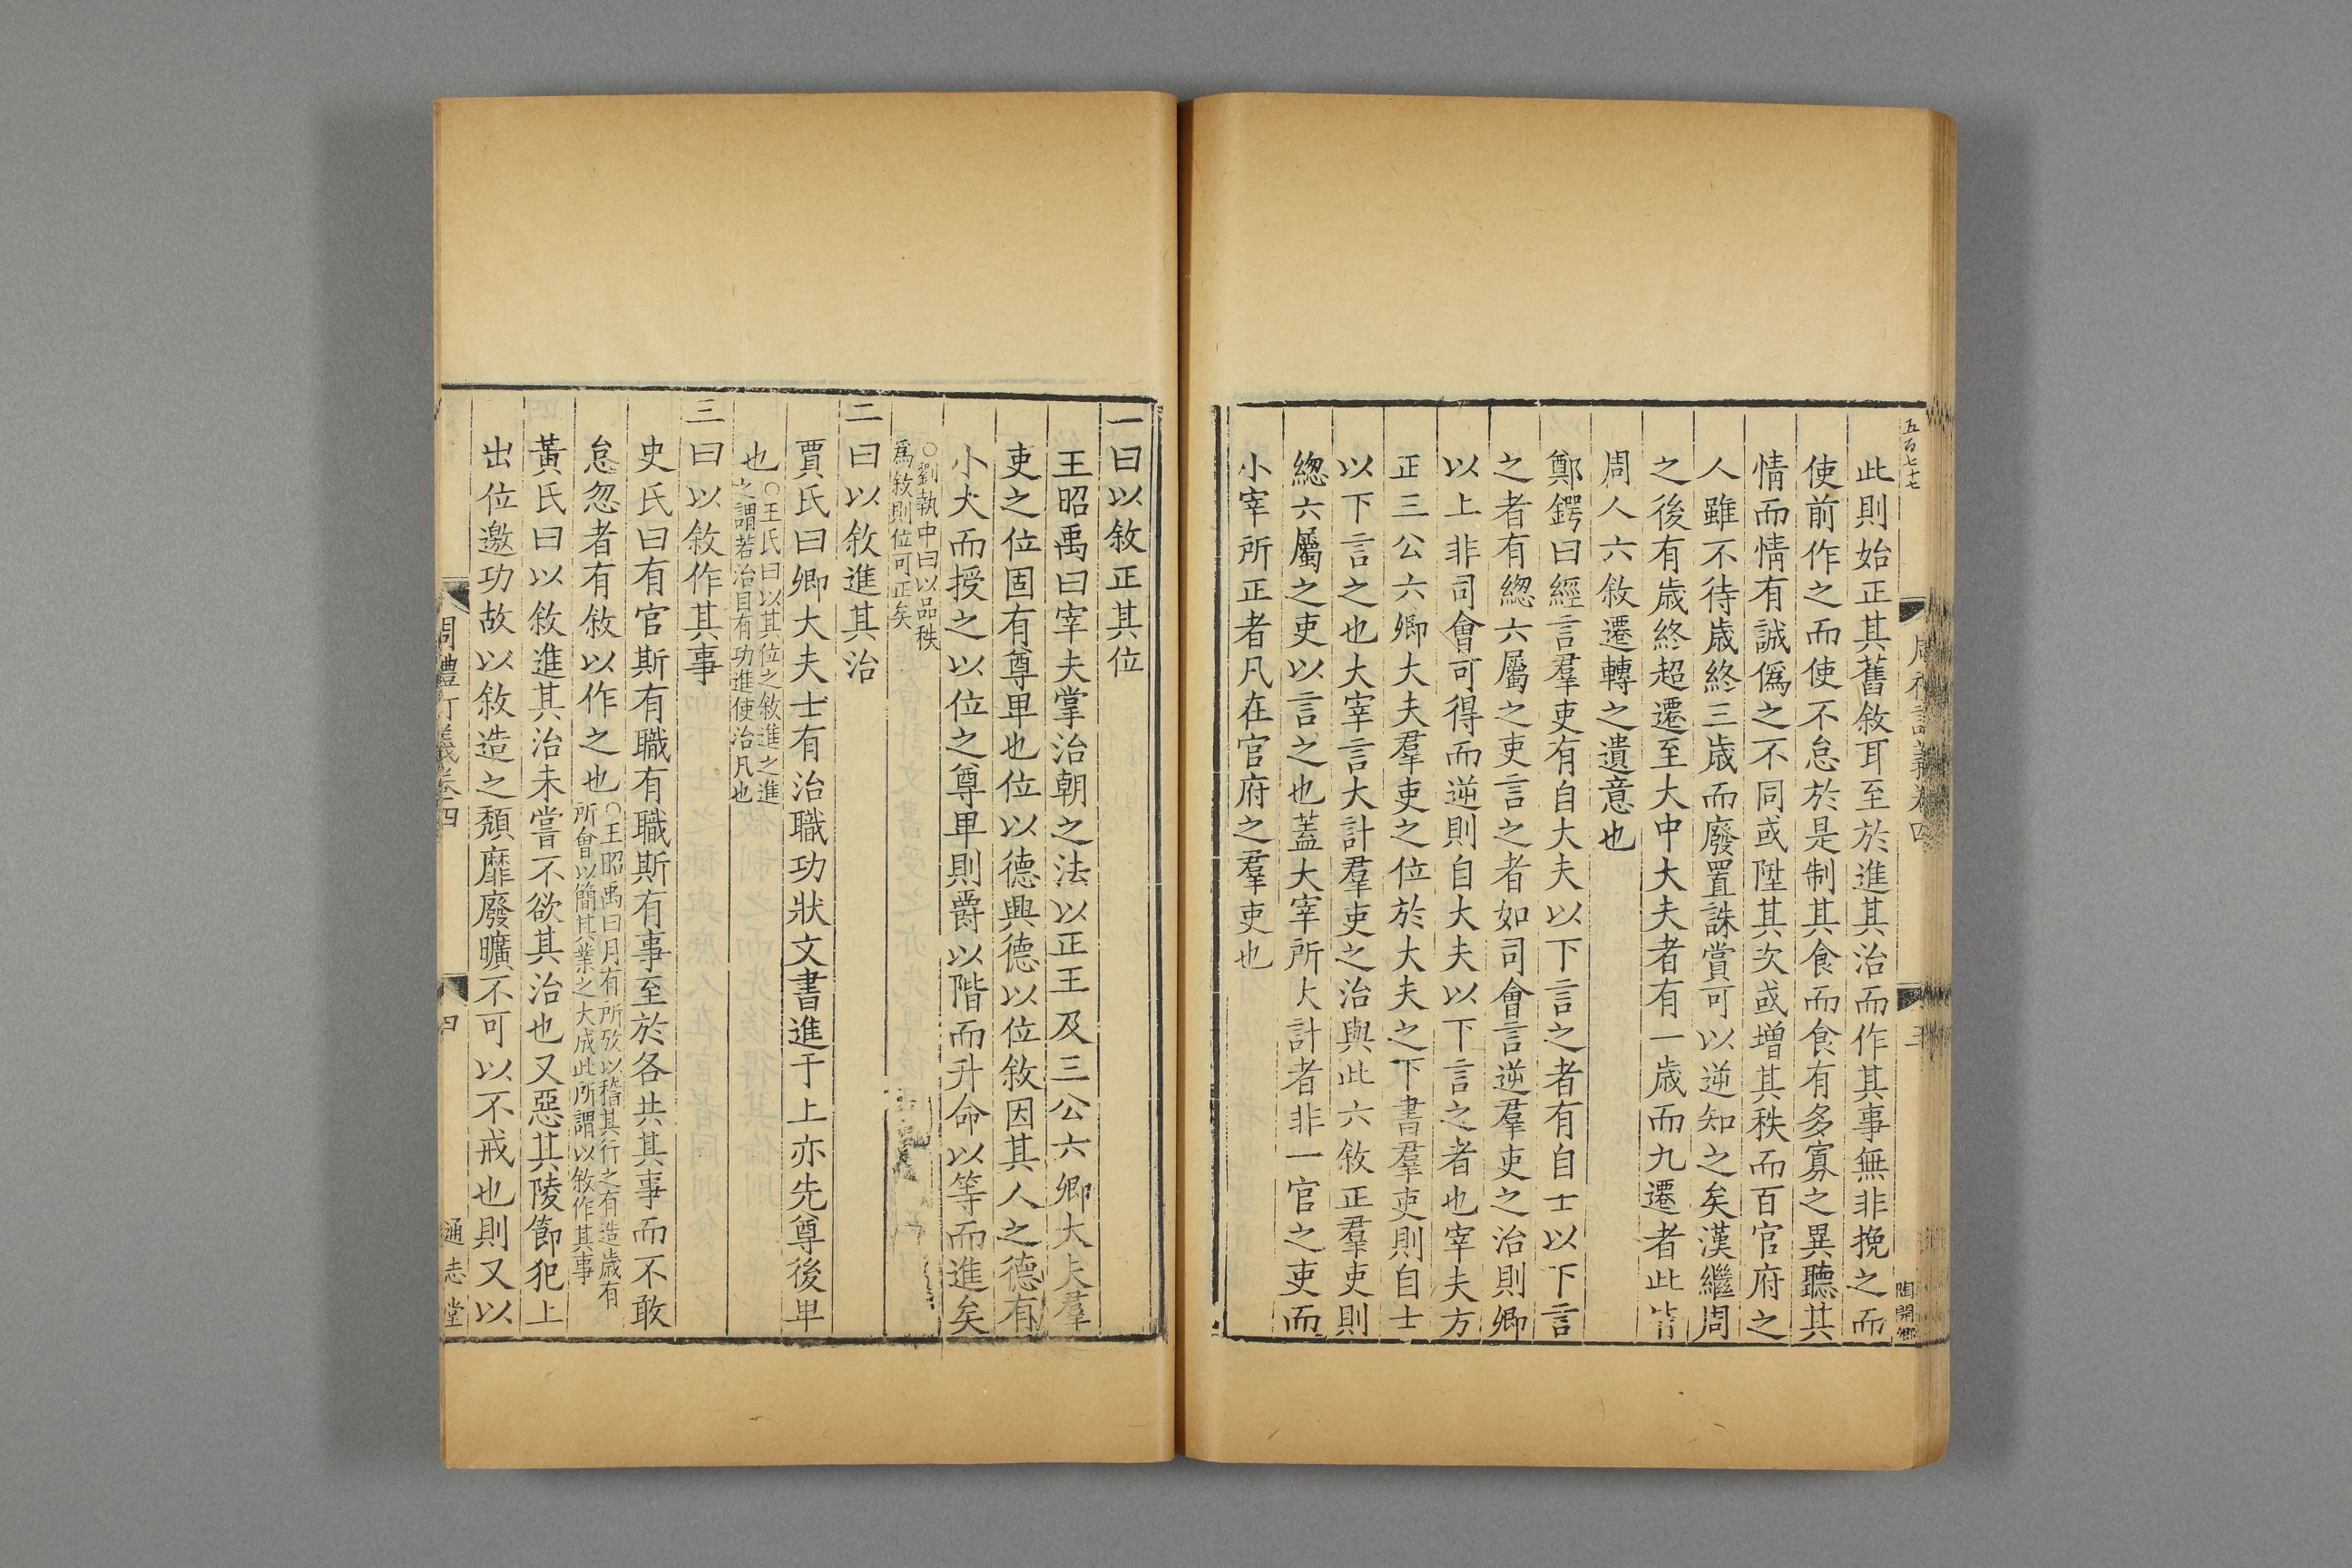 五百七十七
周禮訂義卷四
三
陶開卿
此則始正其舊敘耳至於進其治而作其事無非挽之而
使前作之而使不怠於是制其食而食有多寡之異聽其
情而情有誠僞之不同或陞其次或增其秩而百官府之
人雖不待歲終三歲而廢置誅賞可以逆知之矣漢繼周
之後有歲終超遷至大中大夫者有一歲而九遷者此皆
周人六敘遷轉之遺意也
鄭鍔曰經言羣吏有自大夫以下言之者有自士以下言
之者有緫六屬之吏言之者如司會言逆羣吏之治則卿
以上非司會可得而逆則自大夫以下言之者也宰夫方
正三公六卿大夫羣吏之位於大夫之下書羣吏則自士
以下言之也大宰言大計羣吏之治與此六敘正羣吏則
緫六屬之吏以言之也蓋大宰所大計者非一官之吏而
小宰所正者凡在官府之羣吏也
一曰以敘正其位
王昭禹曰宰夫掌治朝之法以正王及三公六卿大夫羣
吏之位固有尊卑也位以德興德以位敘因其人之德有
小大而授之以位之尊卑則爵以階而升命以等而進矣
○劉執中曰以品秩
爲敘則位可正矣
二曰以敘進其治
賈氏曰卿大夫士有治職功狀文書進于上亦先尊後卑
也○王氏曰以其位之敘進之進
之謂若治目有功進使治凡也
三曰以敘作其事
史氏曰有官斯有職有職斯有事至於各共其事而不敢
怠忽者有敘以作之也○王昭禹曰月有所攷以稽其行之有造歲有
所會以簡其業之大成此所謂以敘作其事
黃氏曰以敘進其治未嘗不欲其治也又惡其陵節犯上
出位邀功故以敘造之頹靡廢曠不可以不戒也則又以
周禮訂義卷四
四
通志堂